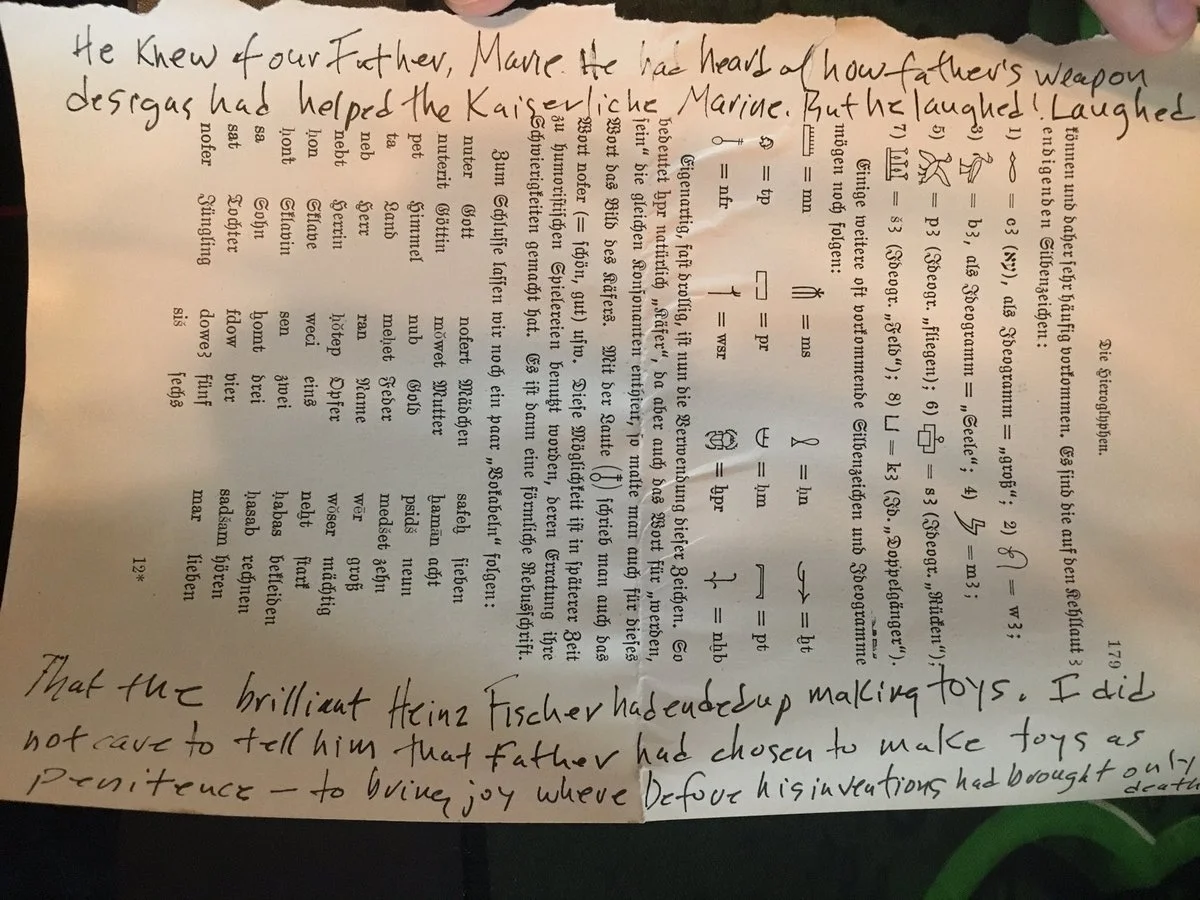 He Knew of our Father, Marie. He had heard of how father's weapon
designs had helped the Kaiserliche Marine. But he laughed! Laughed
Die Hieroglyphen. 179
können und daher sehr häufig vorkommen. Es sind die auf den Kehllaut ꜣ
endigenden Silbenzeichen:
1) = cꜣ (), als Ideogramm = „groß“; 2) = wꜣ;
3) = bꜣ, als Ideogramm = „Seele“; 4) = mꜣ;
5) = pꜣ (Ideogr. „fliegen); 6) = sꜣ (Ideogr. „Rücken“);
7) = šꜣ (Ideogr. „Feld“); 8) = kꜣ (Id. „Doppelgänger“).
Einige weitere oft vorkommende Silbenzeichen und Ideogramme
mögen noch folgen:
= mn = ms = ḥn = ḫt
= tp = pr = ḥm = pt
= nfr = wsr = ḫpr = nḥb
Eigenartig, fast drollig, ist nun die Verwendung dieser Zeichen. So
bedeutet ḫpr natürlich „Käfer“, da aber auch das Wort für „werden,
sein“ die gleichen Konsonanten enthielt, so malte man auch für dieses
Wort das Bild des Käfers. Mit der Laute () schrieb man auch das
Wort nofer (= schön, gut) usw. Diese Möglichkeit ist in späterer Zeit
zu humoristischen Spielereien benutzt worden, deren Erratung ihre
Schwierigkeiten gemacht hat. Es ist dann eine förmliche Rebusschrift.
Zum Schlusse lassen wir noch ein paar „Vokabeln“ folgen:
nuter Gott nofert Mädchen safeḫ sieben
nuterit Göttin mōwet Mutter ḫamān acht
pet Himmel nub Gold psidš neun
ta Land meḥet Feder medšet zehn
neb Herr ran Name wēr groß
nebt Herrin ḥōtep Opfer wōser mächtig
ḥon Sklave weci eins neḫt stark
ḥont Sklavin sen zwei ḥabas bekleiden
sa Sohn ḫomt drei ḥasab rechnen
sat Tochter fdow vier sadšam hören
nofer Jüngling doweꜣ fünf mar lieben
siš sechs
12*
That the brilliant Heinz Fischer had ended up making toys. I did
not care to tell him that Father had chosen to make toys as
penitence — to bring joy where before his inventions had brought only
death